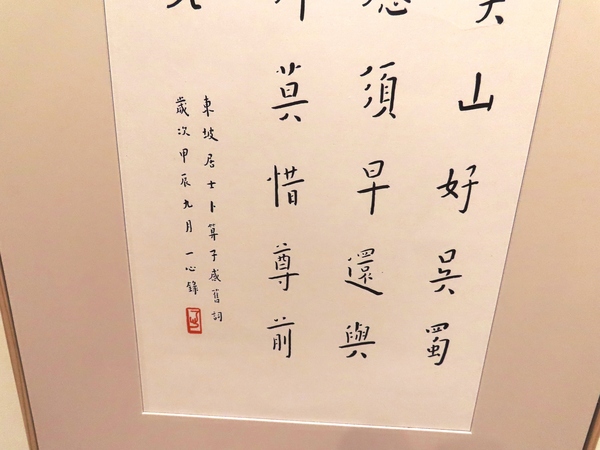 山好吳蜀
須早還與
莫惜尊前
東坡居士卜算子感舊詞
歲次甲辰九月 一心錄